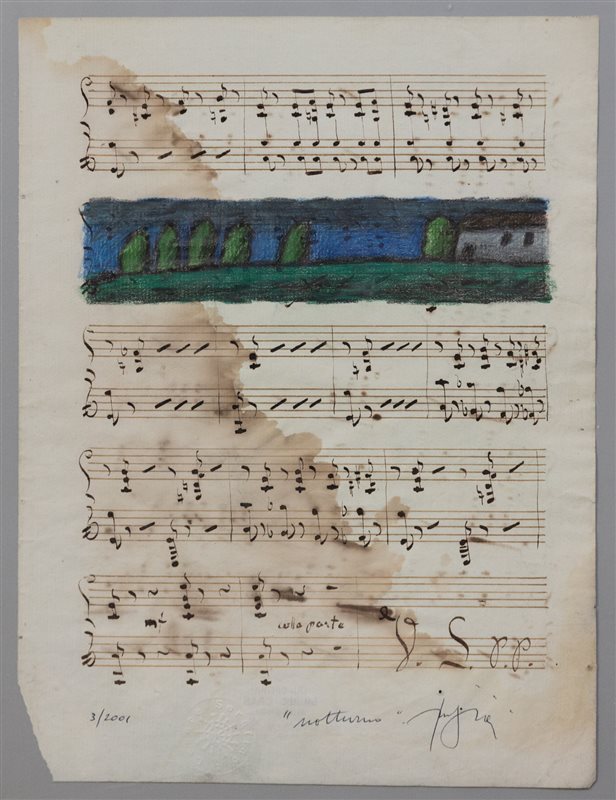 mf
colla parte
V. S. p.p.
3/2001 "notturno"